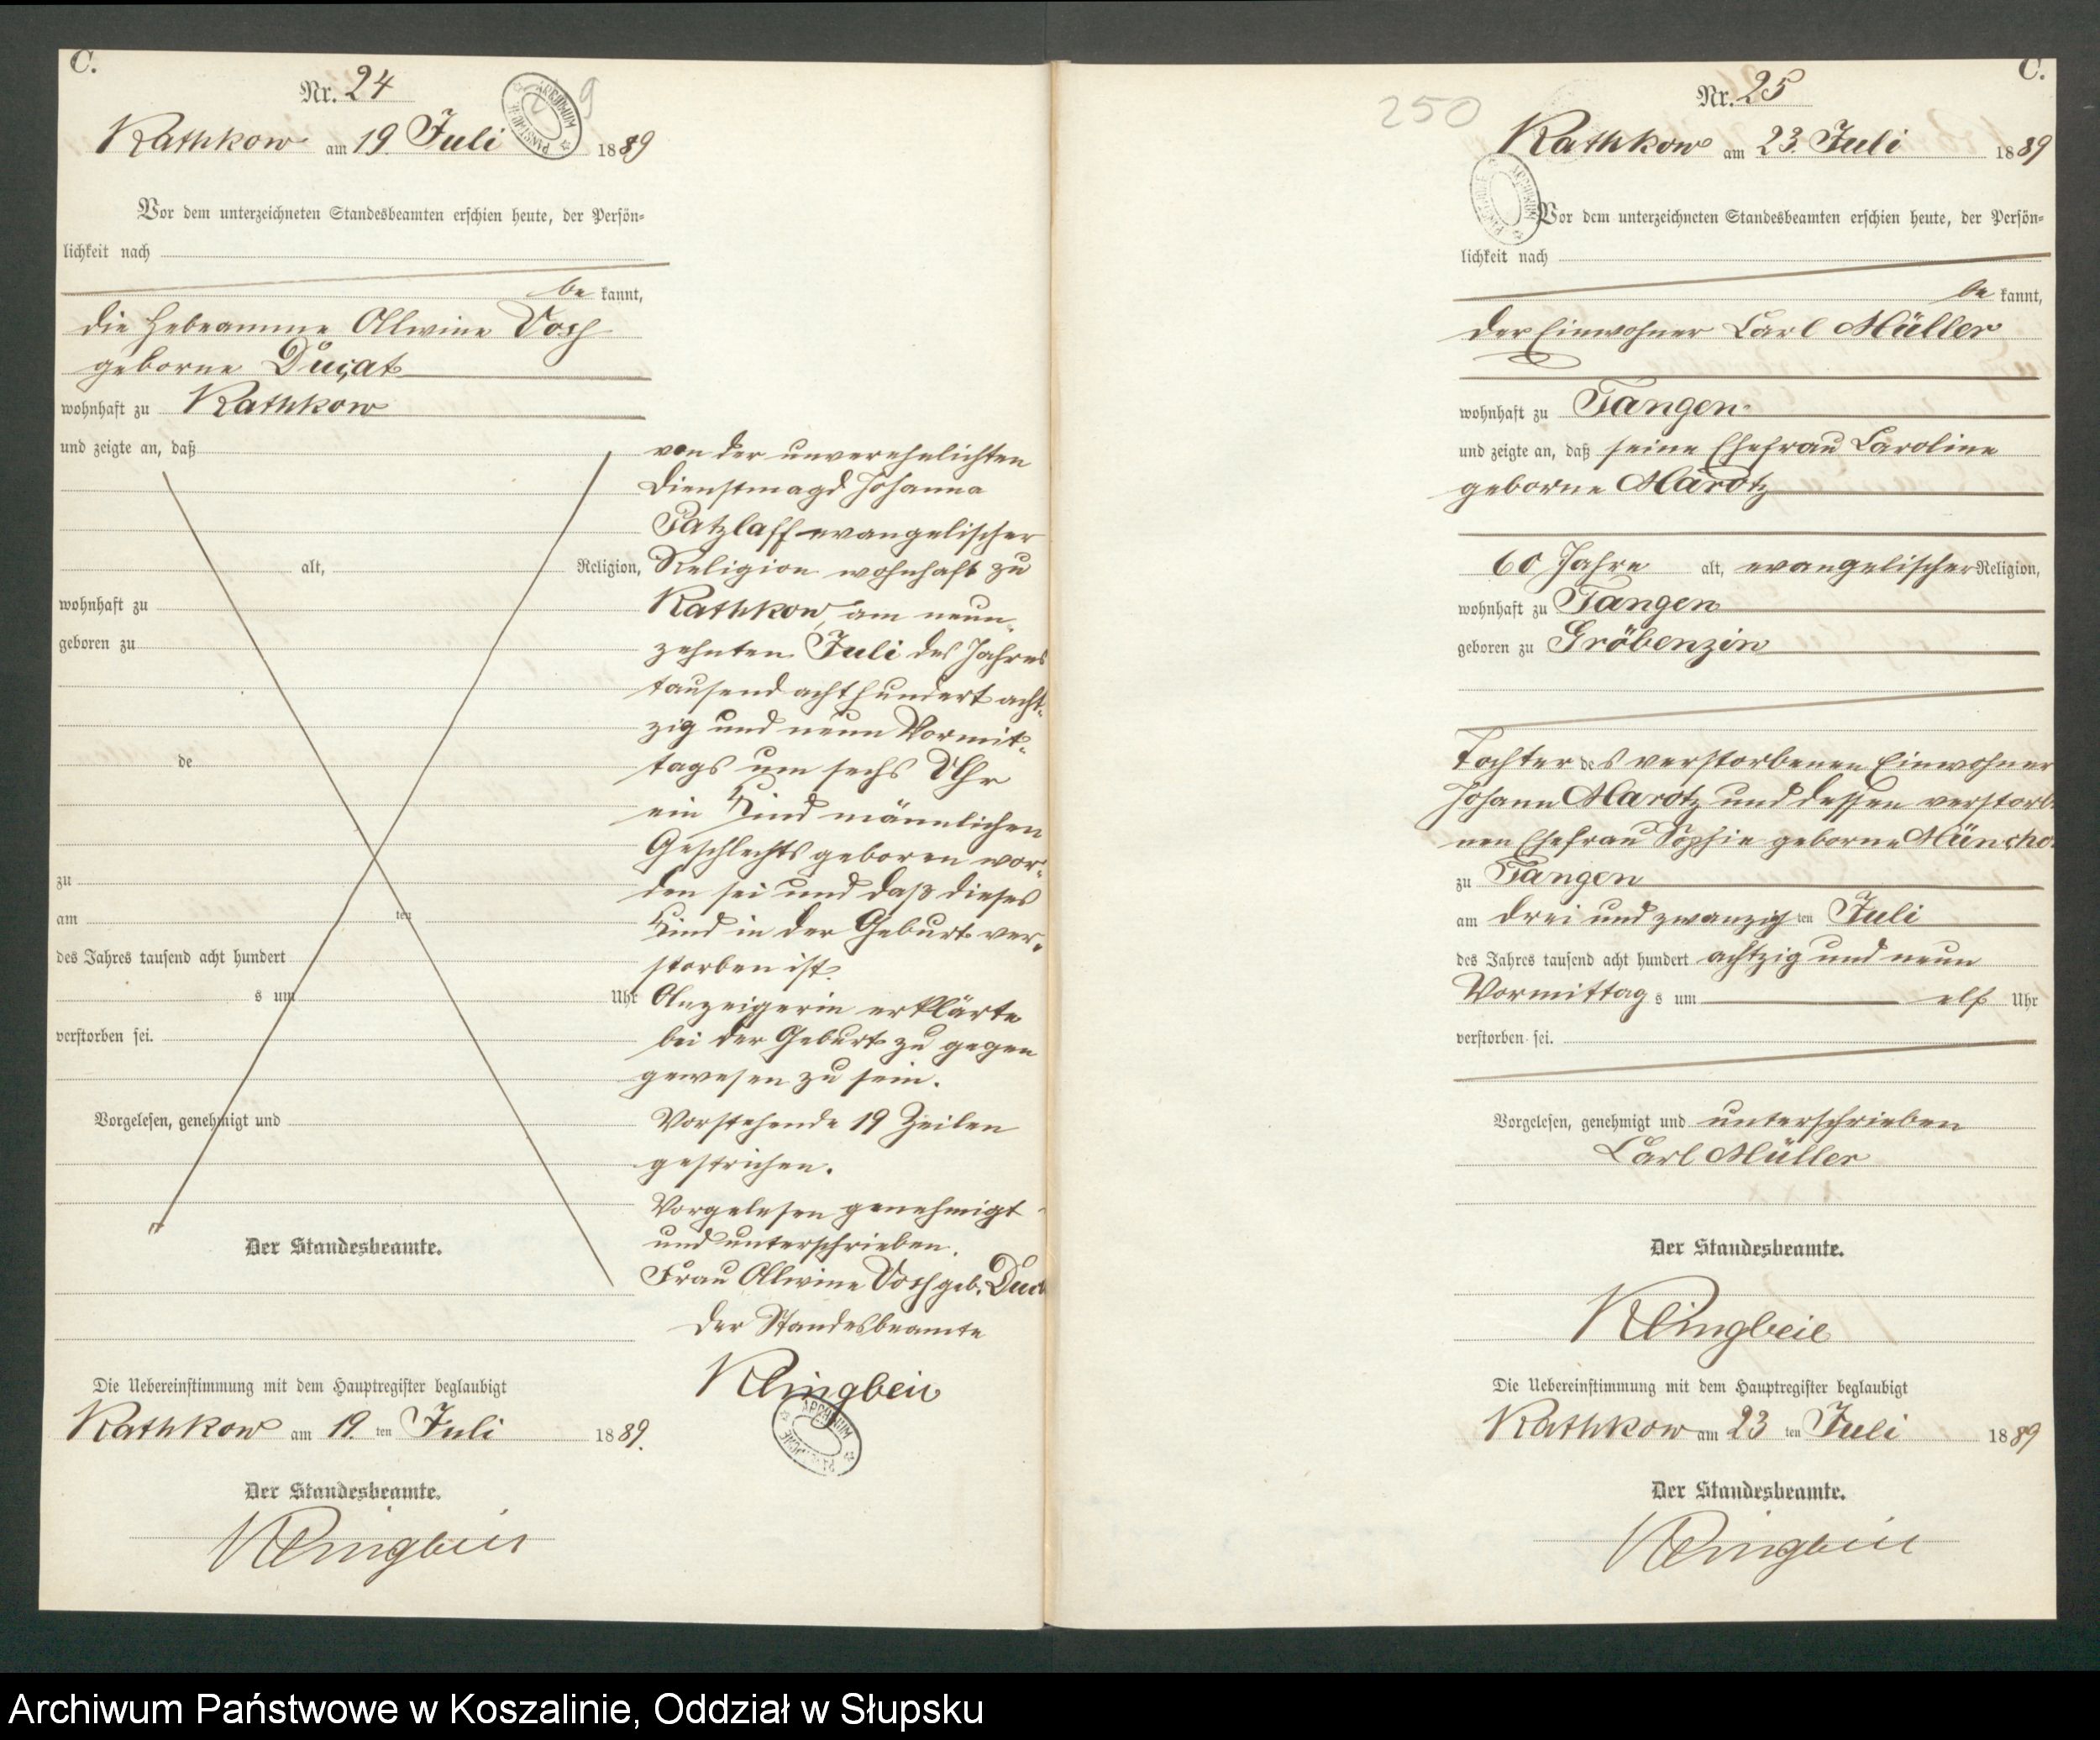 C.
Nr. 24
9
Rathkow am 19. Juli 1889
Vor dem unterzeichneten Standesbeamten erschien heute, der Persön-
lichkeit nach
be kannt,
die Hebeamme Allwine Vosh
geborne Ducat
wohnhaft zu Rathkow
und zeigte an, daß
alt, Religion,
wohnhaft zu
geboren zu
de
zu
am ten
des Jahres tausend acht hundert
s um Uhr
verstorben sei.
Vorgelesen, genehmigt und
Der Standesbeamte.
von der unverehelichten
Dienstmagd Johanna
Patzlaff evangelischer
Religion wohnhaft zu
Rathkow, am neun-
zehnten Juli des Jahres
tausend acht hundert acht-
zig und neun Vormit-
tags um sechs Uhr
ein Kind männlichen
Geschlechts geboren wor-
den sei und daß dieses
Kind in der Geburt ver-
storben ist.
Anzeigerin erklärte
bei der Geburt zu gegen
gewesen zu sein.
Vorstehende 19 Zeilen
gestrichen.
Vorgelesen genehmigt
und unterschrieben.
Frau Allwine Vosh geb. Duc
Der Standesbeamte
Klingbeil
Die Uebereinstimmung mit dem Hauptregister beglaubigt
Rathkow am 19. ten Juli 1889.
Der Standesbeamte.
Klingbeil
C.
250
Nr. 25
Rathkow am 23. Juli 1889
Vor dem unterzeichneten Standesbeamten erschien heute, der Persön-
lichkeit nach
be kannt,
der Einwohner Carl Müller
wohnhaft zu Tangen
und zeigte an, daß seine Ehefrau Caroline
geborne Marotz
60 Jahre alt, evangelischer Religion,
wohnhaft zu Tangen
geboren zu Gröbenzin
Tochter des verstorbenen Einwohner
Johann Marotz und dessen verstorbe
nen Ehefrau Sophie geborne Müncho
zu Tangen
am drei und zwanzig ten Juli
des Jahres tausend acht hundert achtzig und neun
Vormittag s um elf Uhr
verstorben sei.
Vorgelesen, genehmigt und unterschrieben
Carl Müller
Der Standesbeamte.
Klingbeil
Die Uebereinstimmung mit dem Hauptregister beglaubigt
Rathkow am 23 ten Juli 1889
Der Standesbeamte.
Klingbeil
Archiwum Państwowe w Koszalinie, Oddział w Słupsku